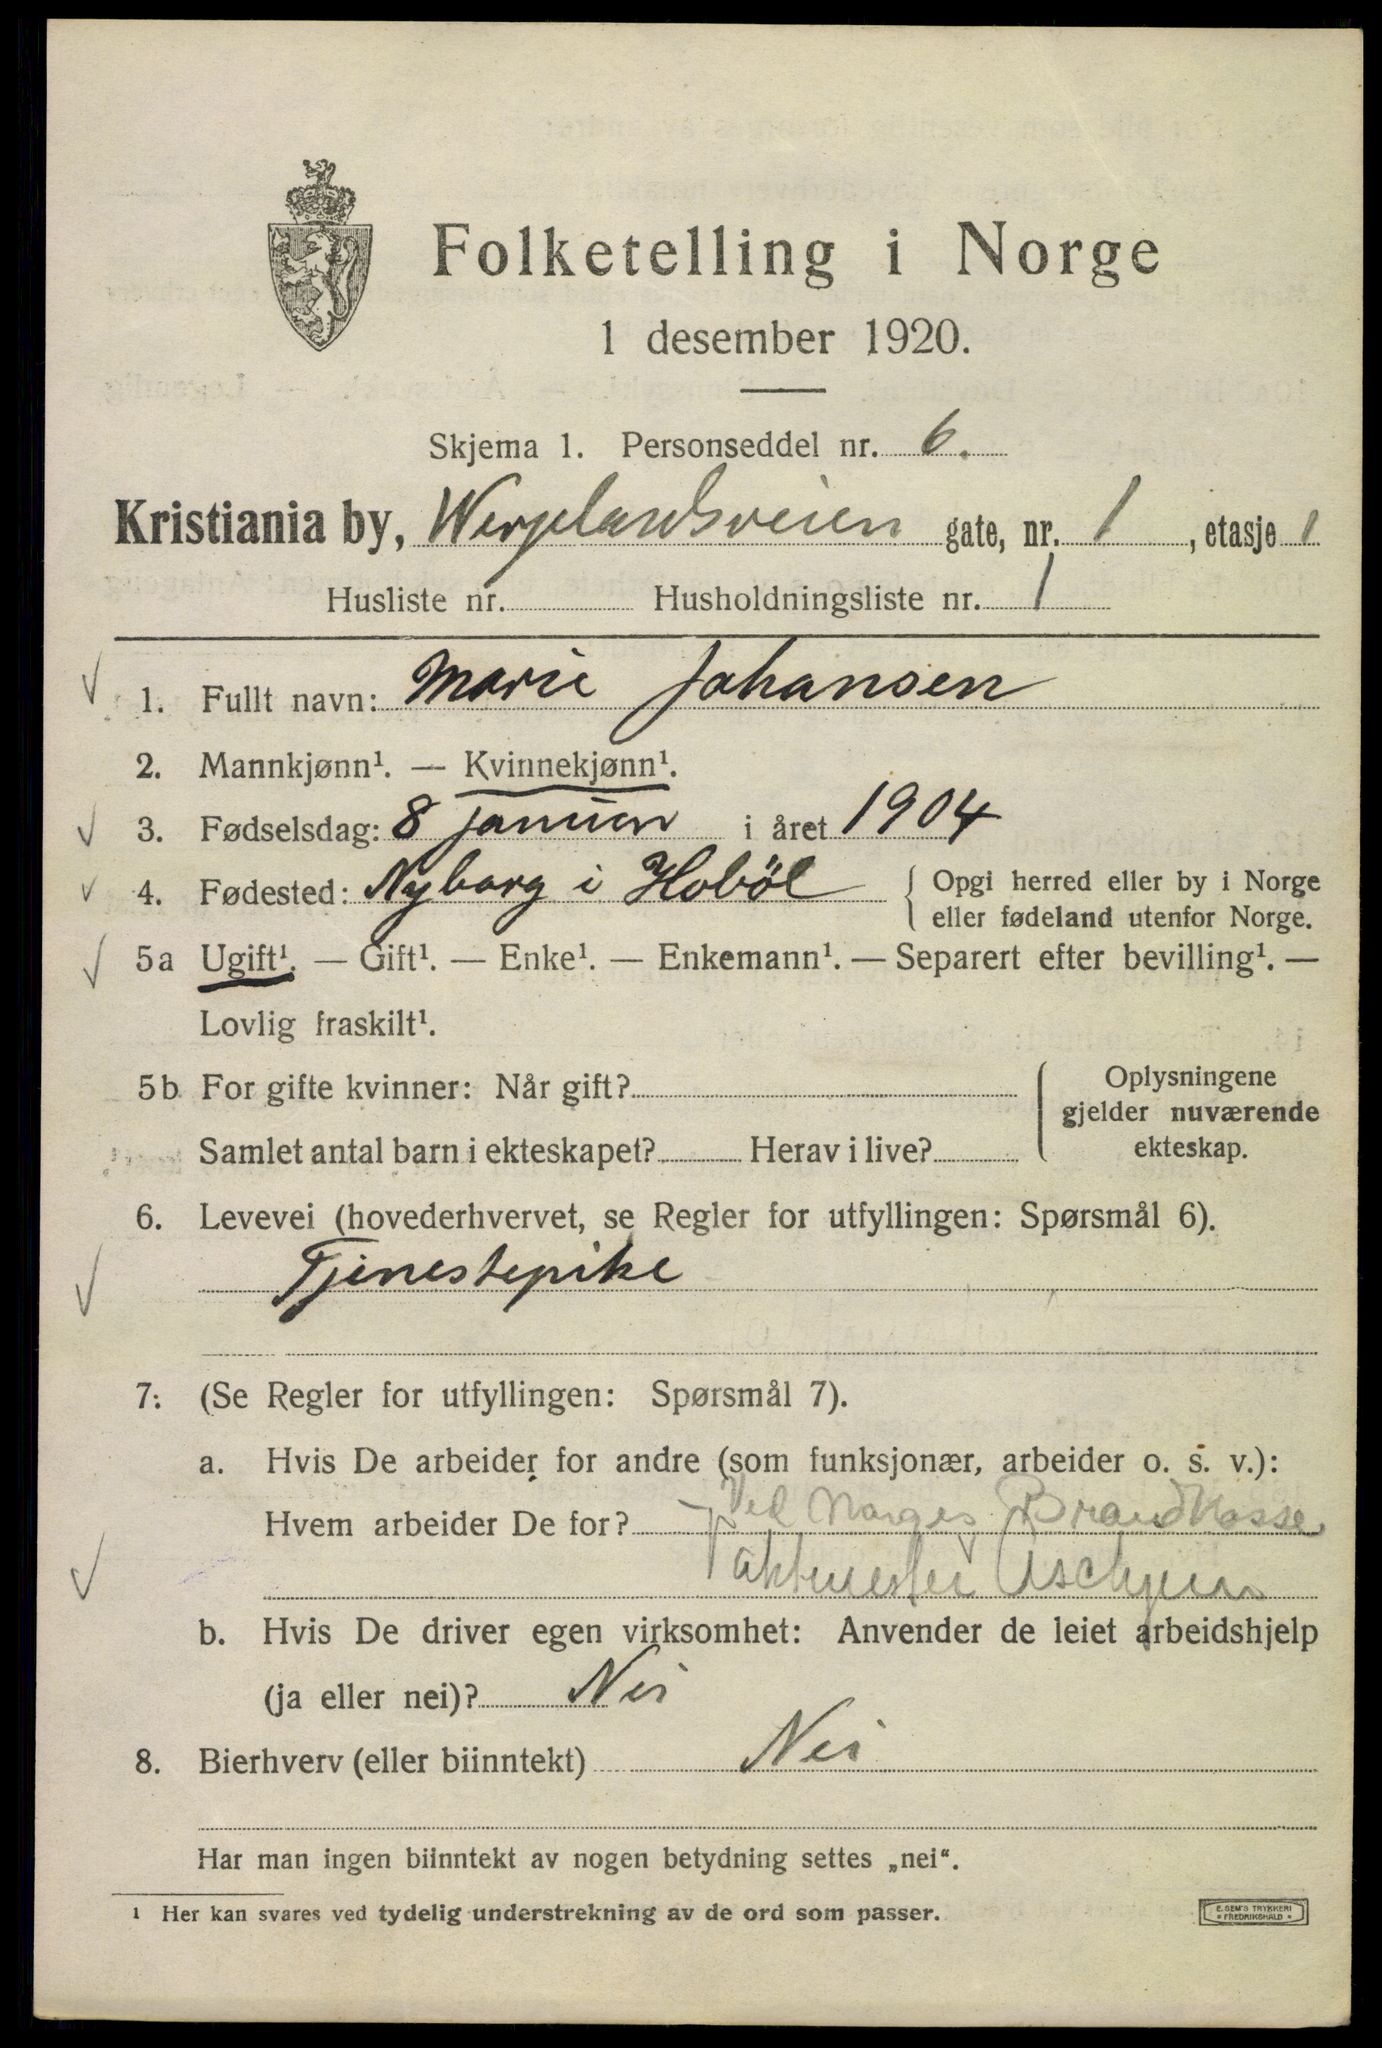 Folketelling i Norge
1 desember 1920.
Skjema 1. Personseddel nr. 6.
Kristiania by, Wergelandsveien gate, nr. 1, etasje 1
Husliste nr. Husholdningsliste nr. 1
1. Fullt navn: Marie Johansen
2. Mannkjønn¹. — Kvinnekjønn¹.
3. Fødselsdag: 8 januer i året 1904
4. Fødested: Nyborg i Hobøl { Opgi herred eller by i Norge
eller fødeland utenfor Norge.
5a Ugift¹. — Gift¹. — Enke¹. — Enkemann¹. — Separert efter bevilling¹. —
Lovlig fraskilt¹.
5b For gifte kvinner: Når gift?
Samlet antal barn i ekteskapet? Herav i live?
Oplysningene
gjelder nuværende
ekteskap.
6. Levevei (hovederhvervet, se Regler for utfyllingen: Spørsmål 6).
Tjenestepike
7. (Se Regler for utfyllingen: Spørsmål 7).
a. Hvis De arbeider for andre (som funksjonær, arbeider o. s. v.):
Hvem arbeider De for? Ved Norges Brandkasse
b. Hvis De driver egen virksomhet: Anvender de leiet arbeidshjelp
(ja eller nei)? Nei
8. Bierhverv (eller biinntekt) Nei
Har man ingen biinntekt av nogen betydning settes „nei“.
¹ Her kan svares ved tydelig understrekning av de ord som passer.
E. SEM'S TRYKKERI
* FREDRIKSHALD *